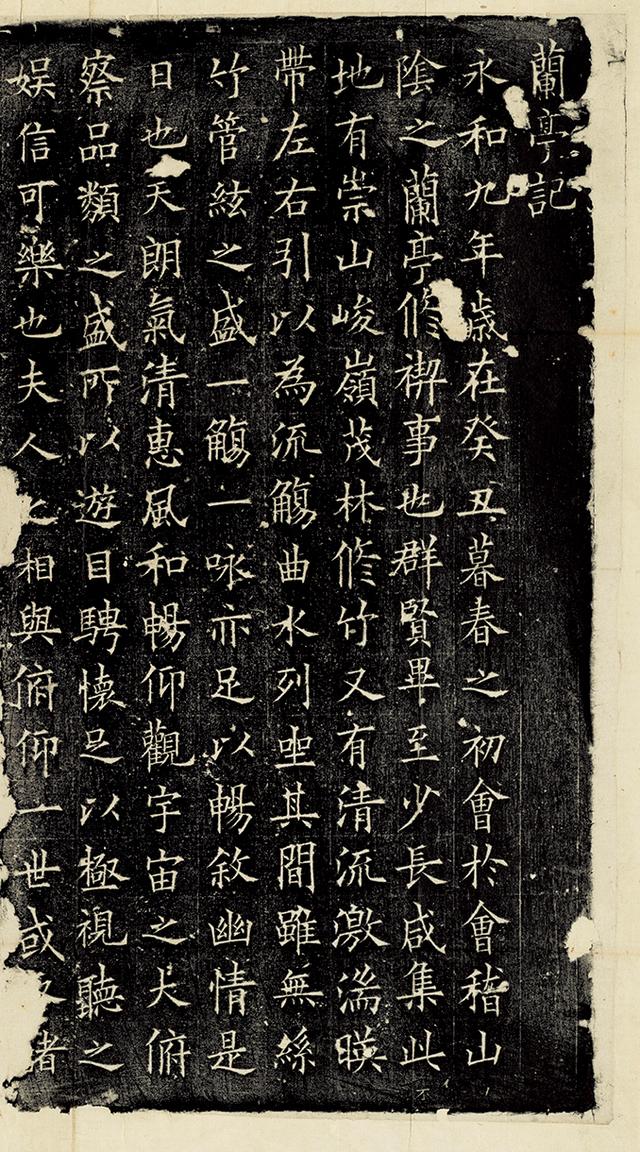 蘭亭記
永和九年歲在癸丑暮春之初會於會稽山
陰之蘭亭修禊事也群賢畢至少長咸集此
地有崇山峻嶺茂林修竹又有清流激湍暎
帶左右引以為流觴曲水列坐其間雖無絲
竹管絃之盛一觴一咏亦足以暢敘幽情是
日也天朗氣清惠風和暢仰觀宇宙之大俯
察品類之盛所以遊目騁懷足以極視聽之
娛信可樂也夫人之相與俯仰一世或